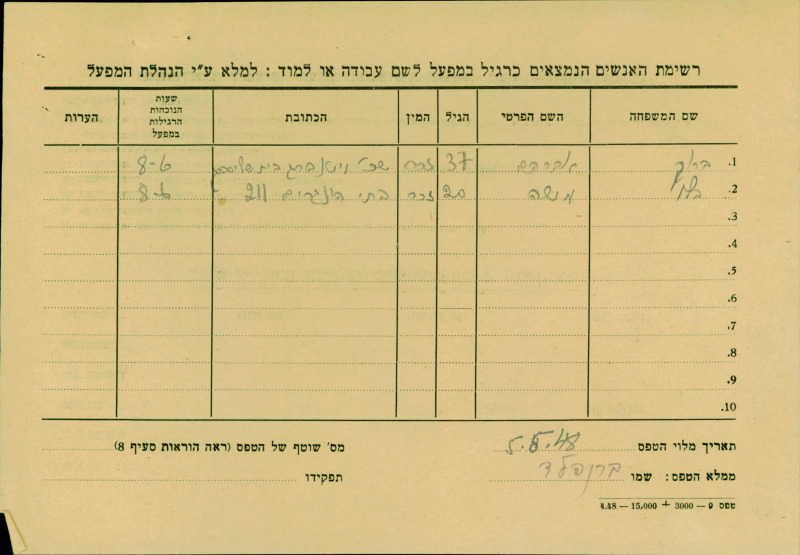 רשימת האנשים הנמצאים כרגיל במפעל לשם עבודה או למוד : למלא ע"י הנהלת המפעל
שם המשפחה השם הפרטי הגיל המין הכתובת שעות הנוכחות הרגילות במפעל הערות
1. אברהם 37 זכר שכ' 8-6
2. משה 20 זכר בתי הונגרים 211 8-6
3.
4.
5.
6.
7.
8.
9.
10.
תאריך מלוי הטפס 5.5.48 מס' שוטף של הטפס (ראה הוראות סעיף 8)
ממלא הטפס: שמו ברנפלד תפקידו
טפס 9 — 3000 + 15,000 — 4.48